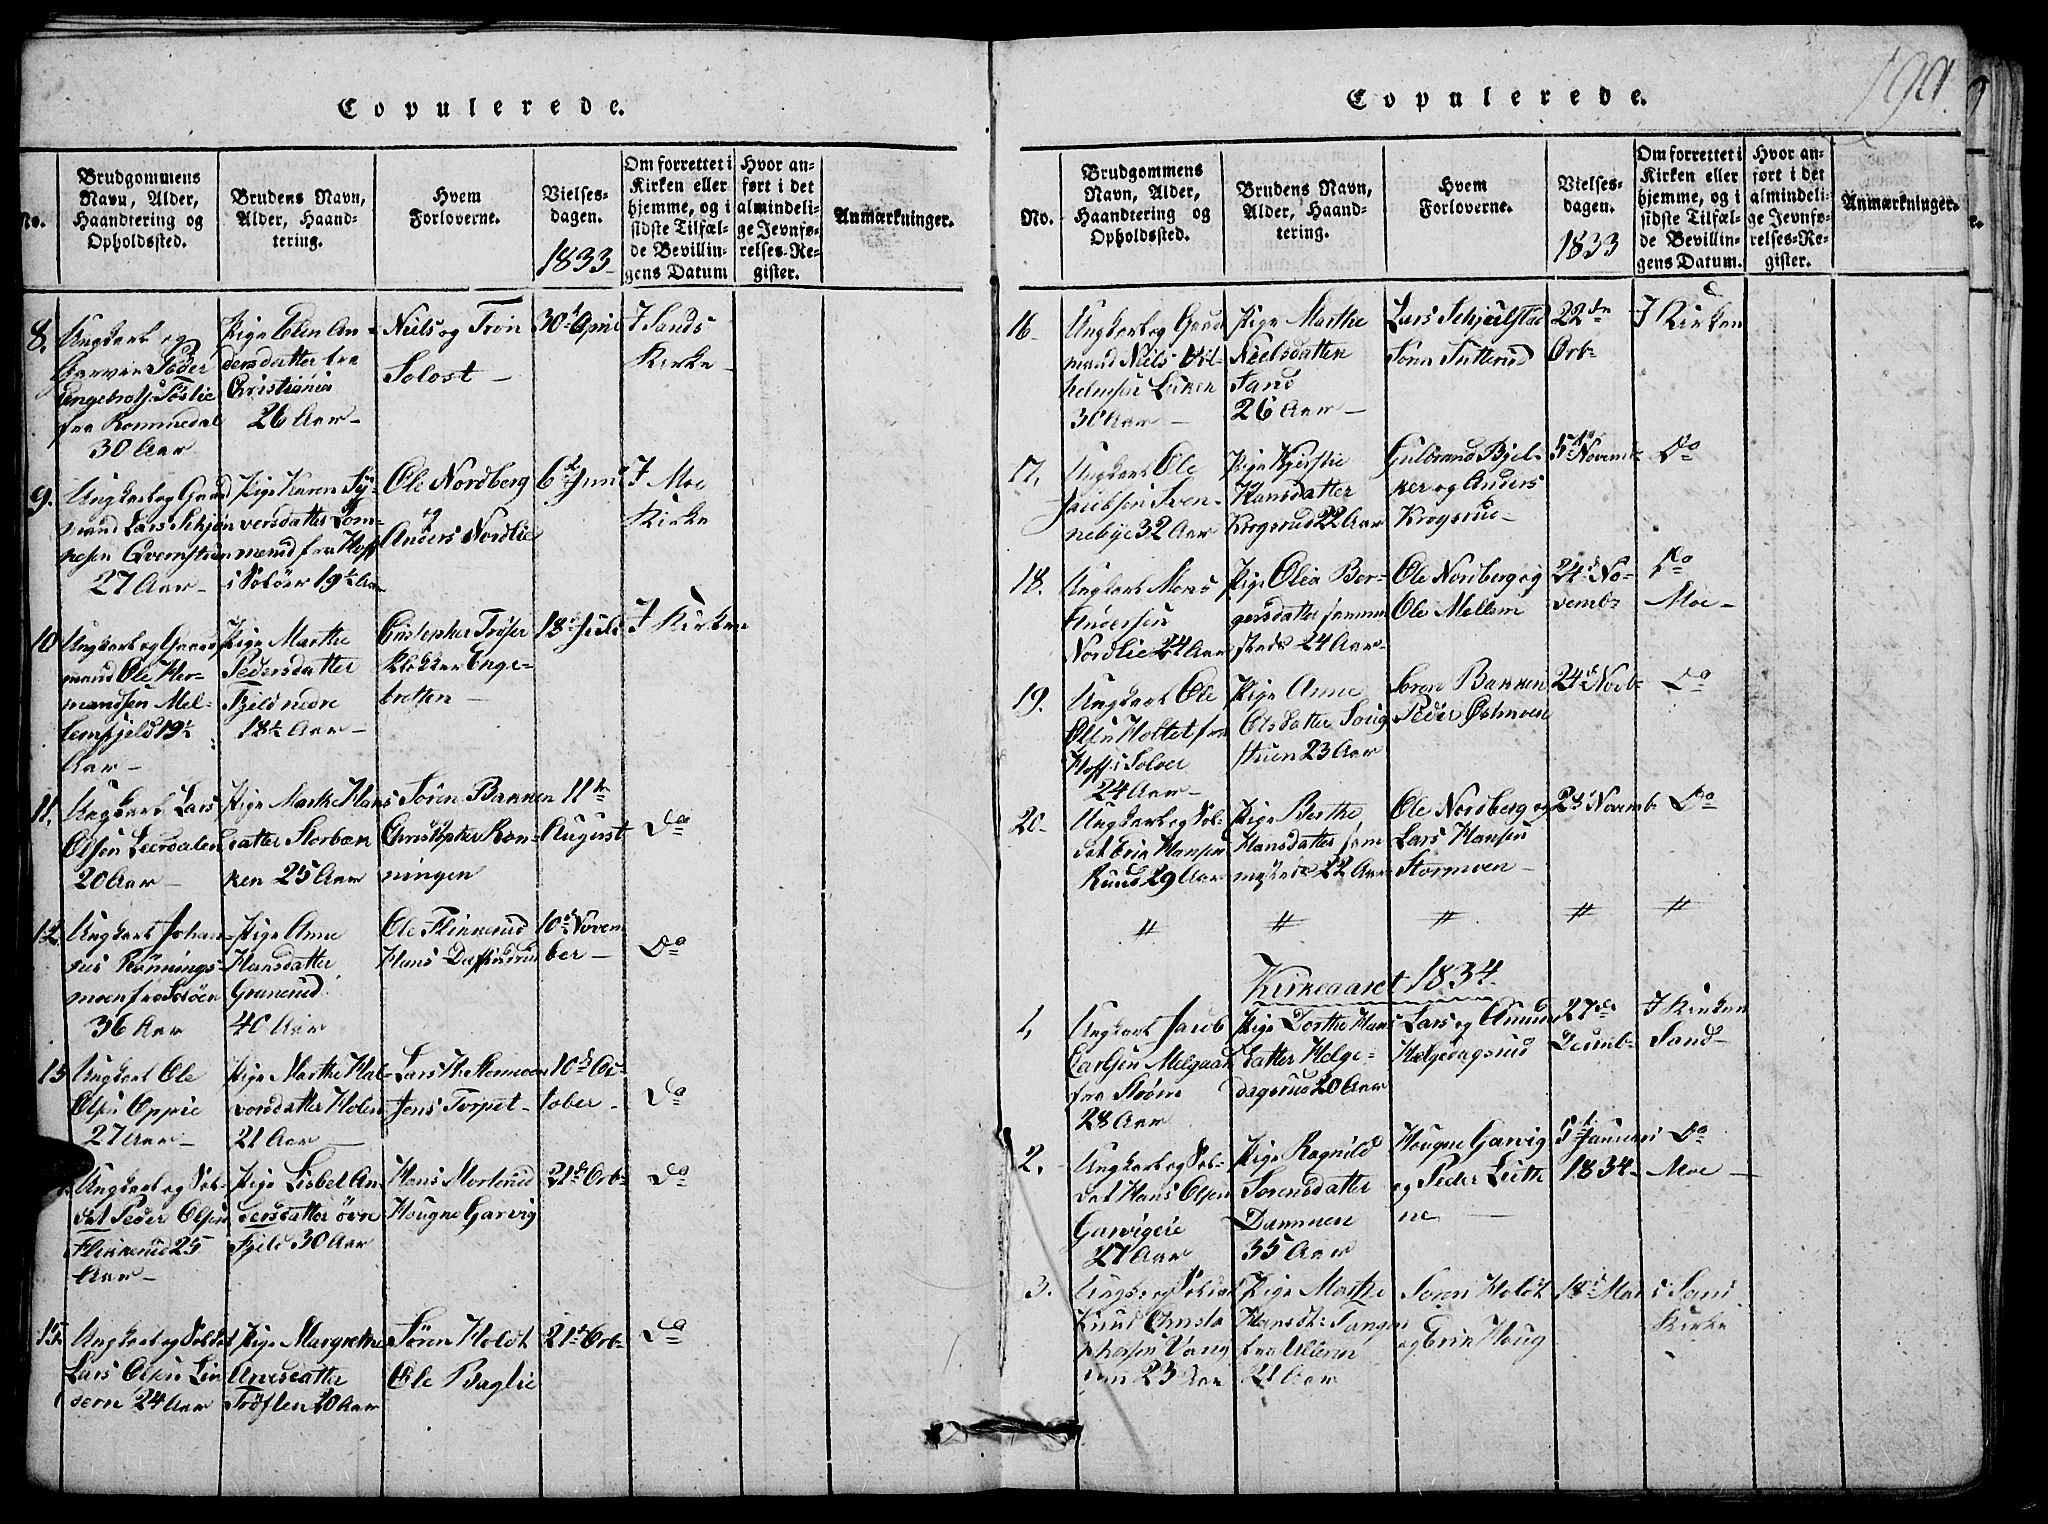 Copulerede.
No.
Brudgommens
Navn, Alder,
Haandtering og
Opholdssted.
Brudens Navn,
Alder, Haand-
tering.
Hvem
Forloverne.
Vielses-
dagen.
1833
Om forrettet i
Kirken eller
hjemme, og i
sidste Tilfæl-
de Bevillin-
gens Datum
Hvor an-
ført i det
almindeli-
ge Jevnfø-
relses-Re-
gister.
Anmærkninger.
8.
Ungkarl og
Peder
Engebretsen
fra Rommedal
30 Aar
Pige Elen An-
dersdatter fra
Christiania
26 Aar
Niels og Trøn
Solost
30 April
I Sands
Kirke
9.
Ungkarl og Gaard
mand Lars Schjøn
nesen Qvernstuen
27 Aar
Pige Karen Sy-
versdatter Lom-
merud fra Hoff
i Soløer 19½ Aar
Ole Nordberg
og
Anders Nordlie
6 Juni
I Moe
Kirke
10
Ungkarl og Gaard
mand Ole Her-
mandsen Mel-
lemfjeld 19½
Aar
Pige Marthe
Pedersdatter
Fjeld nedre
18½ Aar
Cristopher Trøser
Klokker Enge-
bretsen
18 Juli
I Kirken
11.
Ungkarl Lars
Olsen Leerdalen
20 Aar
Pige Marthe Hans
datter Storbæk
ken 25 Aar
Søren Bakken
Christopher Røn-
ningen
11te
August
Do
12.
Ungkarl Johan-
nes Rønnings-
moen fra Soløer
36 Aar
Pige Anne
Hansdatter
Granerud
40 Aar
Ole Flikkerud
Hans
10 Novem
ber
Do
13
Ungkarl Ole
Olsen Oppie
27 Aar
Pige Marthe Hal-
vorsdatter Holen
21 Aar
Lars
Jens Torpet
10 Oc-
tober
Do
Ungkarl og Sol-
dat Peder Olsen
Flikkerud 25
Aar
Pige Lisbet An-
dersdatter øvre
Fjeld 30 Aar
Hans Morterud
Hougne Garvig
21 Octb
Do
15.
Ungkarl og Soldat
Lars Olsen Lin
dern 24 Aar
Pige Margrethe
Arnesdatter
Trøften 20 Aar
Søren Holdt
Ole Baglie
21 Octb
Do
Copulerede.
199.
No.
Brudgommens
Navn, Alder,
Haandtering og
Opholdssted.
Brudens Navn,
Alder, Haand-
tering.
Hvem
Forloverne.
Vielses-
dagen.
1833
Om forrettet i
Kirken eller
hjemme, og i
sidste Tilfæl-
de Bevillin-
gens Datum.
Hvor an-
ført i det
almindeli-
ge Jevnfø-
relses-Re-
gister.
Anmærkninger.
16
Ungkarl og Gaard
mand Niels Wil-
helmsen Løken
30 Aar
Pige Marthe
Nielsdatter
Sand
26 Aar
Lars Schjulstad
Tutterud
22de
Octb
I Kirken
17.
Ungkarl Ole
Jacobsen Sven-
nebye 32 Aar
Pige Kjerstie
Hansdatter
Krogsrud 22 Aar
Gulbrand Bjel-
ker og Anders
Krogsrud
5 Novemb
Do
18.
Ungkarl Mons
Andersen
Nordlie 24 Aar
Pige Olia Bør-
gersdatter samme
steds 24 Aar
Ole Nordberg og
Ole Mellem
24 No-
vemb
Do
Moe
19.
Ungkarl Ole
Olsen Holtet fra
Hoff i Soløer
24 Aar
Pige Anne
Olsdatter Soug
stuen 23 Aar
Soren Bakken
Peder Østmoen
24 Novb
Do
20
Ungkarl og Sol-
dat Erik Hansen
Ruud 29 Aar
Pige Berthe
Hansdatter sam
mesteds 22 Aar
Ole Nordberg og
Lars Hansen
Stormoen
24 Novemb
Do
〃 〃 〃 〃 〃
Kirkeaaret 1834.
1,
Ungkarl Jacob
Carlsen Melgaard
fra Strøm
28 Aar
Pige Dorthe Hans
datter Helge-
dagsrud 20 Aar
Lars og Amund
Helgedagsrud
27de
Decemb
I Kirken
Sand
2.
Ungkarl og Sol-
dat Hans Olsen
Garvigeie
27 Aar
Pige Ragnild
Sorensdatter
Dammen
35 Aar
Hougne Garvig
og Peder Lieth
ne
5 Januari
1834
Do
Moe
3.
Ungk og Soldat
Knud Christo
phersen Vang
23 Aar
Pige Marthe
Hansdtr Tangen
fra Ullern
21 Aar
Soren Holdt
og Erik Houg
18 Mai
i Sand
Kirke